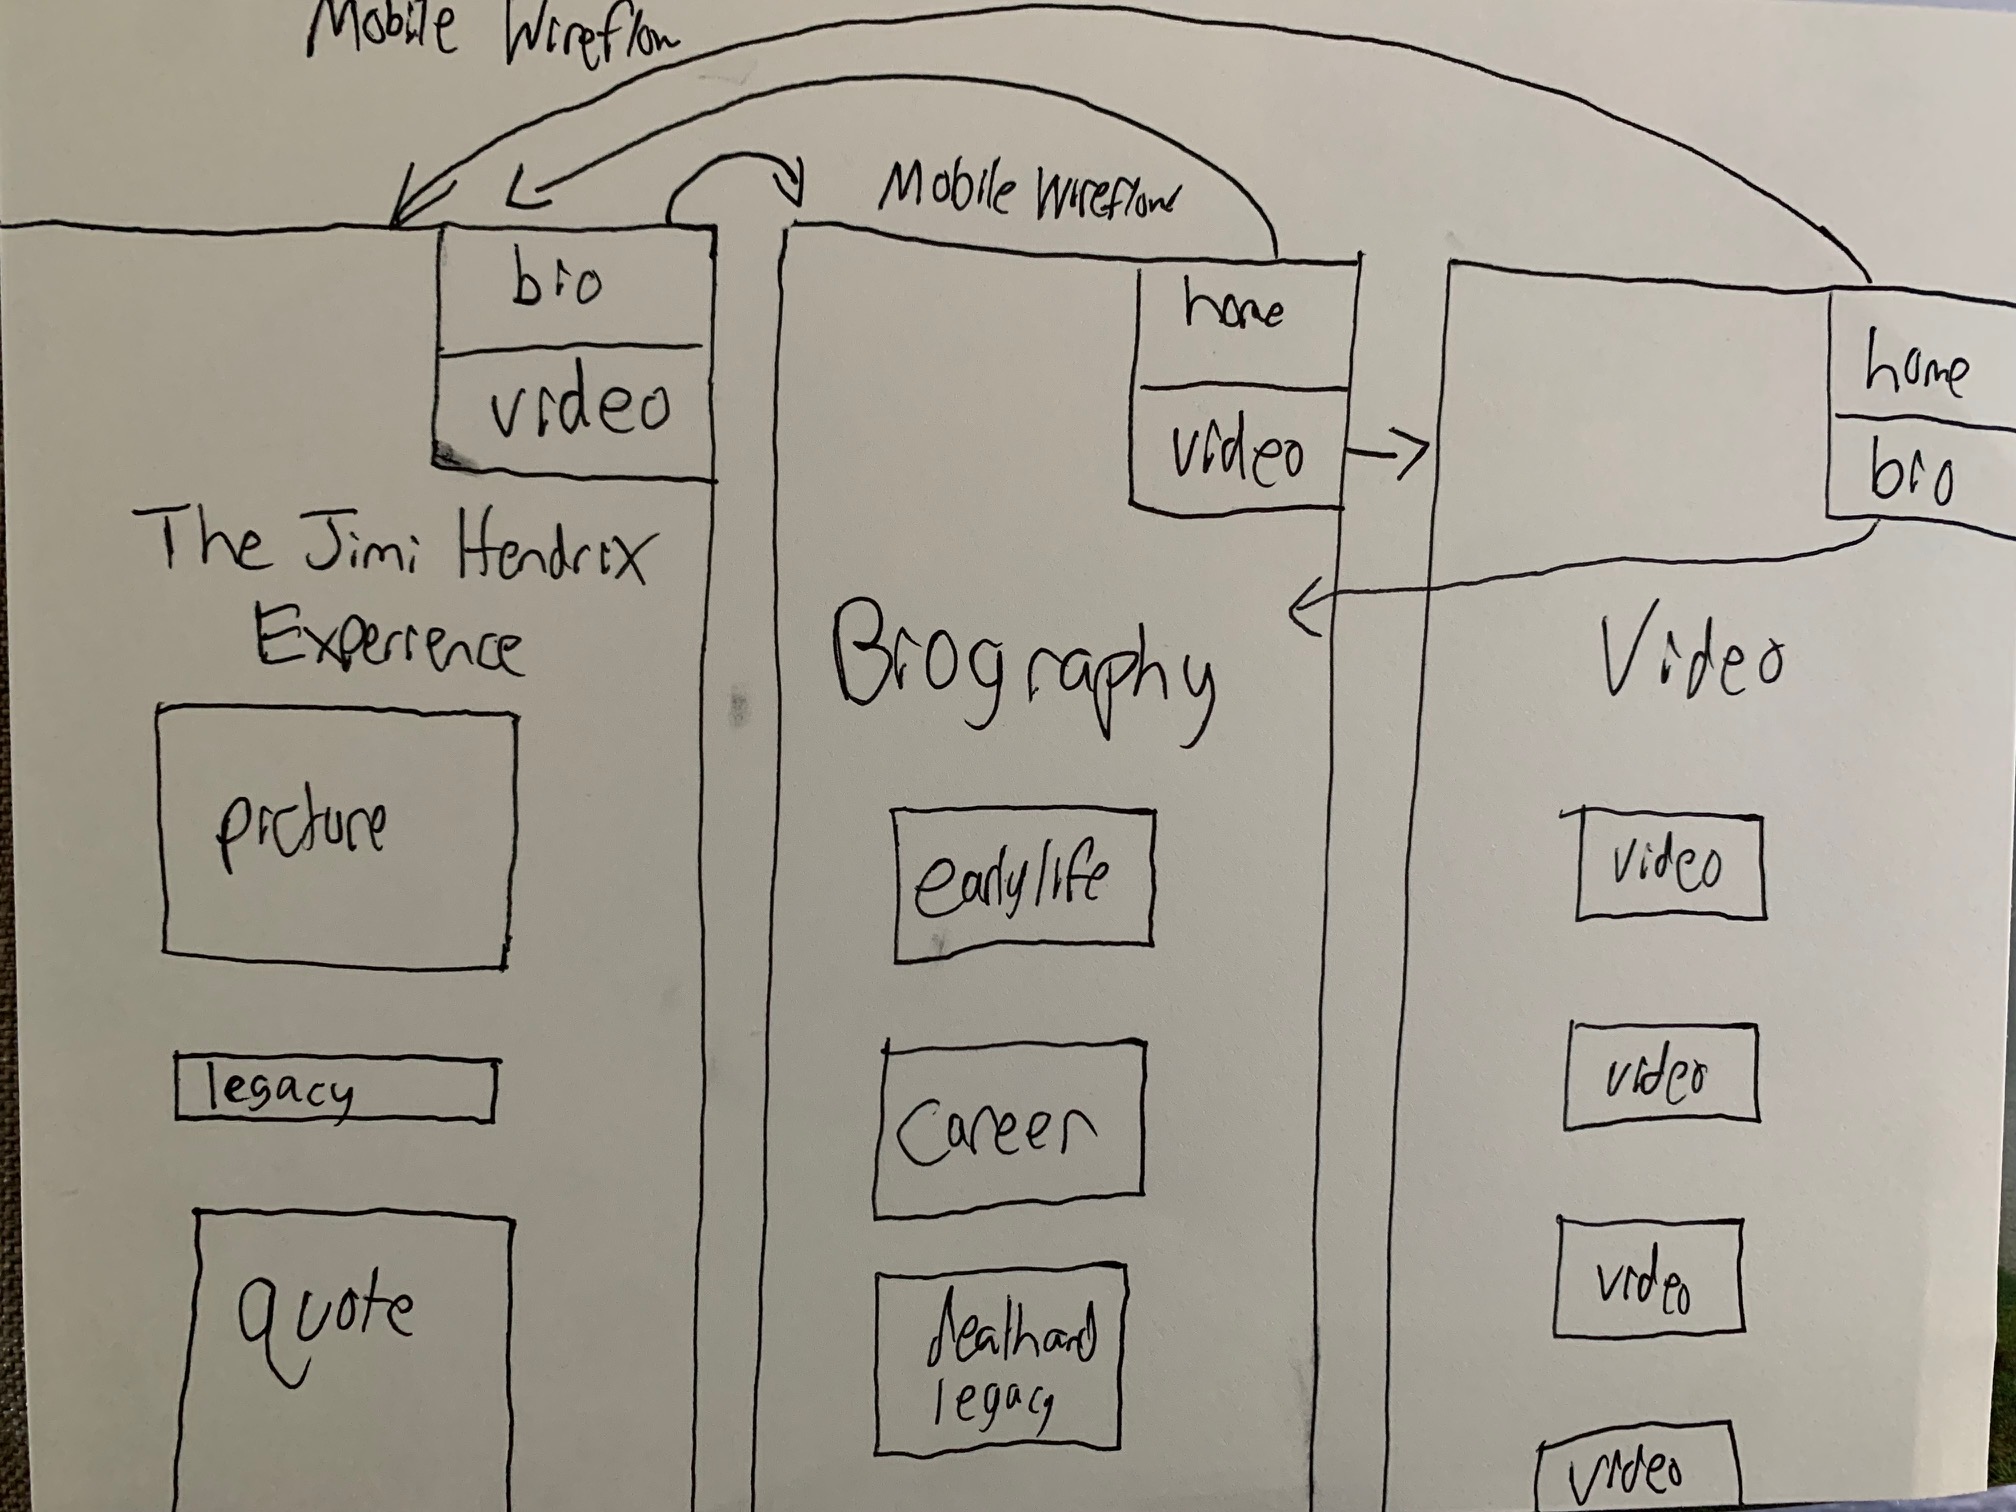 Mobile Wireflow
Mobile Wireflow
bio
video
The Jimi Hendrix
Experience
picture
legacy
quote
home
video
Biography
early life
career
death and
legacy
home
bio
Video
video
video
video
video